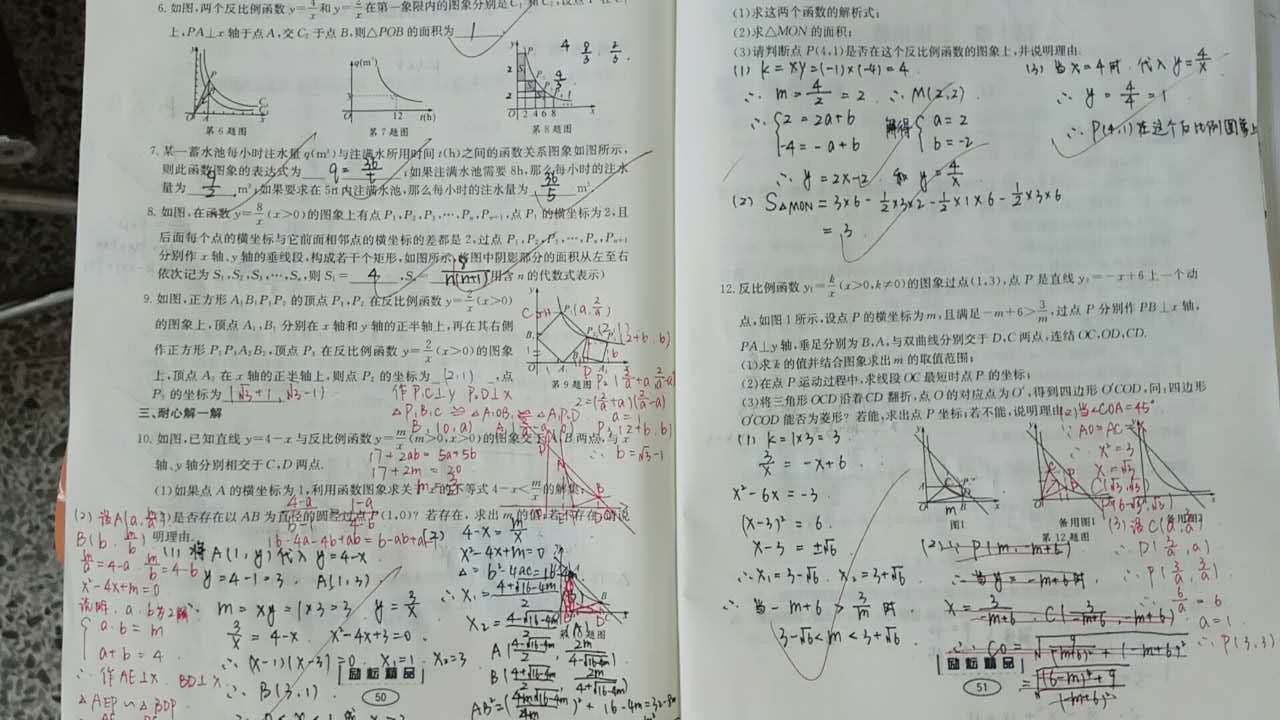 6. 如图,两个反比例函数 y=4/x 和 y=2/x 在第一象限内的图象分别是 C₁ 和 C₂,设点 P 在 C₁
上,PA⊥x 轴于点 A,交 C₂ 于点 B,则△POB 的面积为 1 .
第 6 题图 第 7 题图 第 8 题图
7. 某一蓄水池每小时注水量 q(m³)与注满水所用时间 t(h)之间的函数关系图象如图所示,
则此函数图象的表达式为 q=36/t ,如果注满水池需要 8h,那么每小时的注水
量为 9/2 m³;如果要求在 5h 内注满水池,那么每小时的注水量为 36/5 m³.
8. 如图,在函数 y=8/x (x>0)的图象上有点 P₁,P₂,P₃,…,Pₙ,Pₙ₊₁,点 P₁ 的横坐标为 2,且
后面每个点的横坐标与它前面相邻点的横坐标的差都是 2,过点 P₁,P₂,P₃,…,Pₙ,Pₙ₊₁
分别作 x 轴、y 轴的垂线段,构成若干个矩形,如图所示,将图中阴影部分的面积从左至右
依次记为 S₁,S₂,S₃,…,Sₙ,则 S₁= 4 ,Sₙ= 8/n(n+1) .(用含 n 的代数式表示)
9. 如图,正方形 A₁B₁P₁P₂ 的顶点 P₁、P₂ 在反比例函数 y=2/x (x>0)
的图象上,顶点 A₁、B₁ 分别在 x 轴和 y 轴的正半轴上,再在其右侧
作正方形 P₂P₃A₂B₂,顶点 P₃ 在反比例函数 y=2/x (x>0)的图象
上,顶点 A₂ 在 x 轴的正半轴上,则点 P₂ 的坐标为 (2,1) ,点
P₃ 的坐标为 (√3+1,√3-1)
第 9 题图
作P₁C⊥y P₂D⊥x
a=1
b=√3-1
三、耐心解一解
10. 如图,已知直线 y=4-x 与反比例函数 y=m/x (m>0,x>0)的图象交于 A、B 两点,与 x
轴、y 轴分别相交于 C、D 两点.
17+2ab=5a+5b
17+2m=20
m=3/2
(1)如果点 A 的横坐标为 1,利用函数图象求关于 x 的不等式 4-x<m/x 的解集;
(2)是否存在以 AB 为直径的圆经过点 P(1,0)?若存在,求出 m 的值;若不存在,请说
明理由.
(1) 将A(1,y)代入y=4-x
y=4-1=3. A(1,3)
m=xy=1×3=3 y=3/x
3/x=4-x x²-4x+3=0
∴(x-1)(x-3)=0 x₁=1 x₂=3
∴B(3,1)
m/a=4-a m/b=4-b
x²-4x+m=0
a·b=m
a+b=4
∴作AE⊥x BD⊥x
△AEP∽△BDP
4-x=m/x
x²-4x+m=0
励志精品
50
(1)求这两个函数的解析式;
(2)求△MON 的面积;
(3)请判断点 P(4,1)是否在这个反比例函数的图象上,并说明理由.
(1) k=xy=(-1)×(-4)=4
∴m=4/2=2 ∴M(2,2)
∴{2=2a+b -4=-a+b 解得{a=2 b=-2
∴y=2x-2 和 y=4/x
(2) S△MON=3×6-1/2×3×2-1/2×1×6-1/2×3×6
=3
(3) 当x=4时 代入y=4/x
∴y=4/4=1
∴P(4,1)在这个反比例图象上
12. 反比例函数 y₁=k/x (x>0,k≠0)的图象过点(1,3),点 P 是直线 y₂=-x+6 上一个动
点,如图 1 所示,设点 P 的横坐标为 m,且满足-m+6>3/m,过点 P 分别作 PB⊥x 轴,
PA⊥y 轴,垂足分别为 B,A,与双曲线分别交于 D,C 两点,连结 OC,OD,CD.
(1)求 k 的值并结合图象求出 m 的取值范围;
(2)在点 P 运动过程中,求线段 OC 最短时点 P 的坐标;
(3)将三角形 OCD 沿着 CD 翻折,点 O 的对应点为 O′,得到四边形 O′COD,问:四边形
O′COD 能否为菱形?若能,求出点 P 坐标;若不能,说明理由.
图1 备用图1 备用图2
第 12 题图
(1) k=1×3=3
3/x=-x+6
x²-6x=-3
(x-3)²=6
x-3=±√6
∴x₁=3-√6 x₂=3+√6
∴当-m+6>3/m时
3-√6<m<3+√6
(2) 当∠COA=45°
∴AO=AC
∴x²=3
(2)∵P(m,-m+6)
∴当y=-m+6时
(3)设C(a,3/a)
∴D(3/a,a)
∴P(3/a,3/a)
6/a=6
a=1
∴P(3,3)
励志精品
51